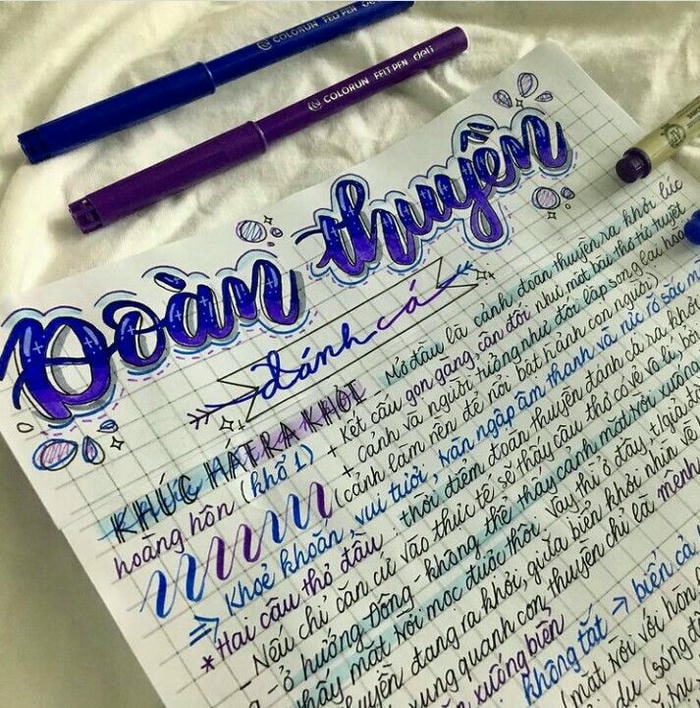 COLORUN FELT PEN deli
COLORUN FELT PEN deli
Đoàn thuyền
đánh cá
KHÚC HÁT RA KHƠI Mở đầu là cảnh đoàn thuyền ra khơi lúc
hoàng hôn (khổ 1) + Kết cấu gọn gàng, cân đối như một bài thơ tứ tuyệt
+ Cảnh và người tưởng như đối lập song lại hoà
(cảnh làm nền để nổi bật hành con người)
=> Khoẻ khoắn, vui tươi, tràn ngập âm thanh và rực rỡ sắc
* Hai câu thơ đầu: thời điểm đoàn thuyền đánh cá ra
- Nếu chỉ căn cứ vào thực tế sẽ thấy câu thơ có vẻ vô lí, bởi
- ở hướng Đông - không thể thấy cảnh mặt trời xuống
thấy mặt trời mọc được thôi. Vậy thì ở đây, t/giả
thuyền đang ra khơi, giữa biển khơi nhìn về
xung quanh con thuyền chỉ là mênh
xuống biển
không tắt → biển cả
(mặt trời với hòn
dụ (sóng